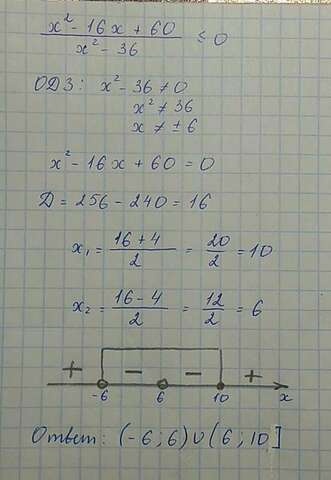 x² - 16x + 60 / x² - 36 ≤ 0
ОДЗ: x² - 36 ≠ 0
x² ≠ 36
x ≠ ± 6
x² - 16x + 60 = 0
Д = 256 - 240 = 16
x₁ = 16 + 4 / 2 = 20 / 2 = 10
x₂ = 16 - 4 / 2 = 12 / 2 = 6
+ - - +
-6 6 10 x
Ответ: (-6; 6) ∪ (6; 10]